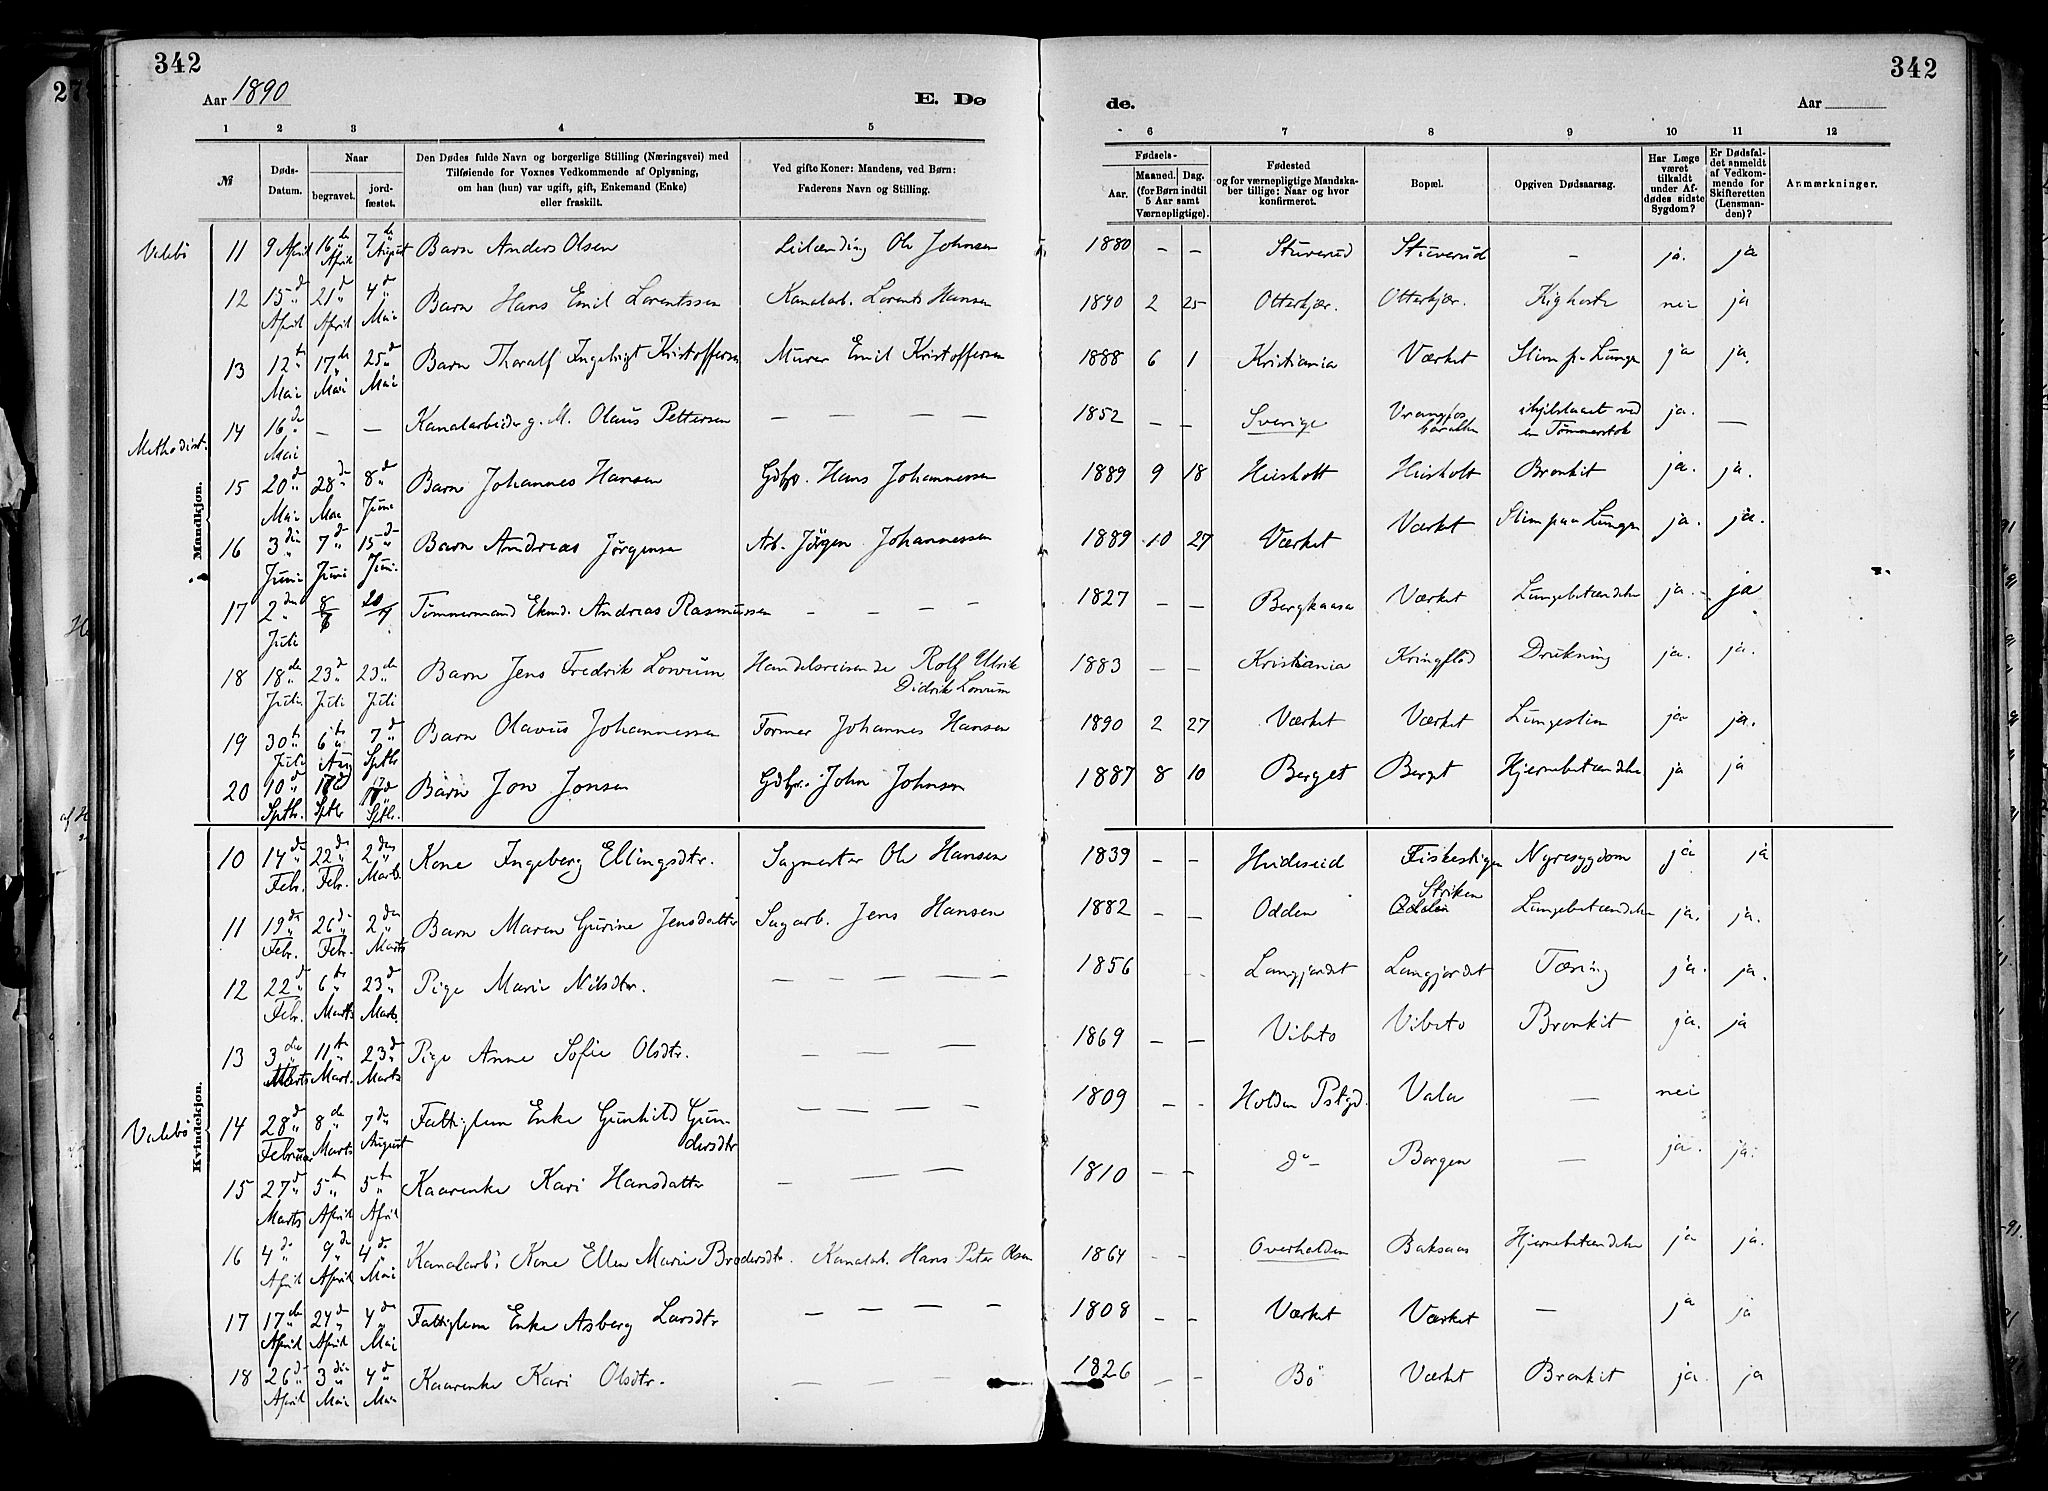 342
342
27
Aar 1890
E. Dø
de.
Aar
1 2 3 4 5 6 7 8 9 10 11 12
№
Døds-Datum.
Naar
begravet.
jord-fæstet.
Den Dødes fulde Navn og borgerlige Stilling (Næringsvei) med
Tilføiende for Voxnes Vedkommende af Oplysning,
om han (hun) var ugift, gift, Enkemand (Enke)
eller fraskilt.
Ved gifte Koner: Mandens, ved Børn:
Faderens Navn og Stilling.
Fødsels-
Aar.
Maaned. Dag.
(for Børn indtil
5 Aar samt
Værnepligtige).
Fødested
og for værnepligtige Mandska-
ber tillige: Naar og hvor
konfirmeret.
Bopæl.
Opgiven Dødsaarsag.
Har Læge
været
tilkaldt
under Af-
dødes sidste
Sygdom?
Er Dødsfal-
det anmeldt
af Vedkom-
mende for
Skifteretten
(Lensman-
den)?
Anmærkninger.
Mandkjøn.
Valebø 11 9 April 16de April 7de August Barn Anders Olsen Leilænding Ole Johnsen 1880 – – Stuverud Stuverud – ja. ja
12 15d April 21d April 4d Mai Barn Hans Emil Lorentssen Kanalarb. Lorents Hansen 1890 2 25 Otterkjær. Otterkjær. Kighoste nei ja
13 12te Mai 17de Mai 25d Mai Barn Thoralf Ingebrigt Kristoffersen Murer Emil Kristoffersen 1888 6 1 Kristiania Værket Slim p. Lunge ja ja.
Methodist. 14 16de Mai – – Kanalarbeider g. M. Olaus Pettersen – – – – 1852 – – Sverige Vrangfos ihjelslaaet ved en Tømmerstok ja. –
15 20d Mai 28d Mai 8d Juni Barn Johannes Hansen Gdbr. Hans Johannessen 1889 9 18 Huisholt Huisholt Bronkit ja. ja.
16 3die Juni 7d Juni 15d Juni. Barn Andreas Jørgensen Arb. Jørgen Johannessen 1889 10 27 Værket Værket Slim paa Lungen ja. ja.
17 2den Juli 8/7 20/7 Tømmermand Ekmd. Andreas Rasmussen – – – – 1827 – – Bergkaasa Værket Lungebetændelse ja. ja
18 18de Juli 23d Juli 23de Juli Barn Jens Fredrik Lovum Handelsreisende Rolf Ulrik Didrik Lovum 1883 – – Kristiania Kringflod Drukning ja. ja.
19 30te Juli 6te Aug 7d Sptbr Barn Olavus Johannessen Former Johannes Hansen 1890 2 27 Værket Værket Lungeslim ja ja.
20 10d Sptbr. 17d Sptbr 17d Sptbr. Barn Jon Jonsen Gdbr. John Johnsen 1887 8 10 Berget Berget Hjernebetændelse ja ja
Kvindekjøn.
10 14de Febr. 22de Febr. 2den Marts. Kone Ingeborg Ellingsdtr. Sagmester Ole Hansen 1839 – – Hvideseid Fiskestigen Nyresygdom ja ja
11 19de Febr. 26de Febr. 2den Marts Barn Maren Gurine Jensdatter Sagarb. Jens Hansen 1882 – – Odden Odden Striken Lungebetændelse ja. ja.
12 22d Febr. 6te Marts 23d Marts. Pige Marie Nilsdtr. – – – – 1856 Langjordet Langjordet Tæring ja. ja.
13 3die Marts 11te Mart. 23d Marts Pige Anne Sofie Olsdtr. – – – 1869 – – Vibeto Vibeto Bronkit ja. ja
Valebø 14 28d Februar 8de Marts 7de August Fattiglem Enke Gunhild Gundersdtr – – – – 1809 – – Holden Pstgd. Vala – nei
15 27d Marts 5te April 5te April Kaarenke Kari Hansdatter – – – 1810 – – do – Borgen – ja. ja.
16 4de April 9de April 4de Mai Kanalarb: Kone Ellen Marie Brodersdtr. Kanalarb. Hans Peter Olsen 1864 – – Overholden Baksaas Hjernebetændelse ja ja.
17 17de April 24de April 4de Mai Fattiglem Enke Asberg Larsdtr – – – – 1808 – – Værket Værket – ja ja
18 26d April 3die Mai 4d Mai Kaarenke Kari Olsdtr. – – – – 1826 – – Bø Værket Bronkit ja. ja